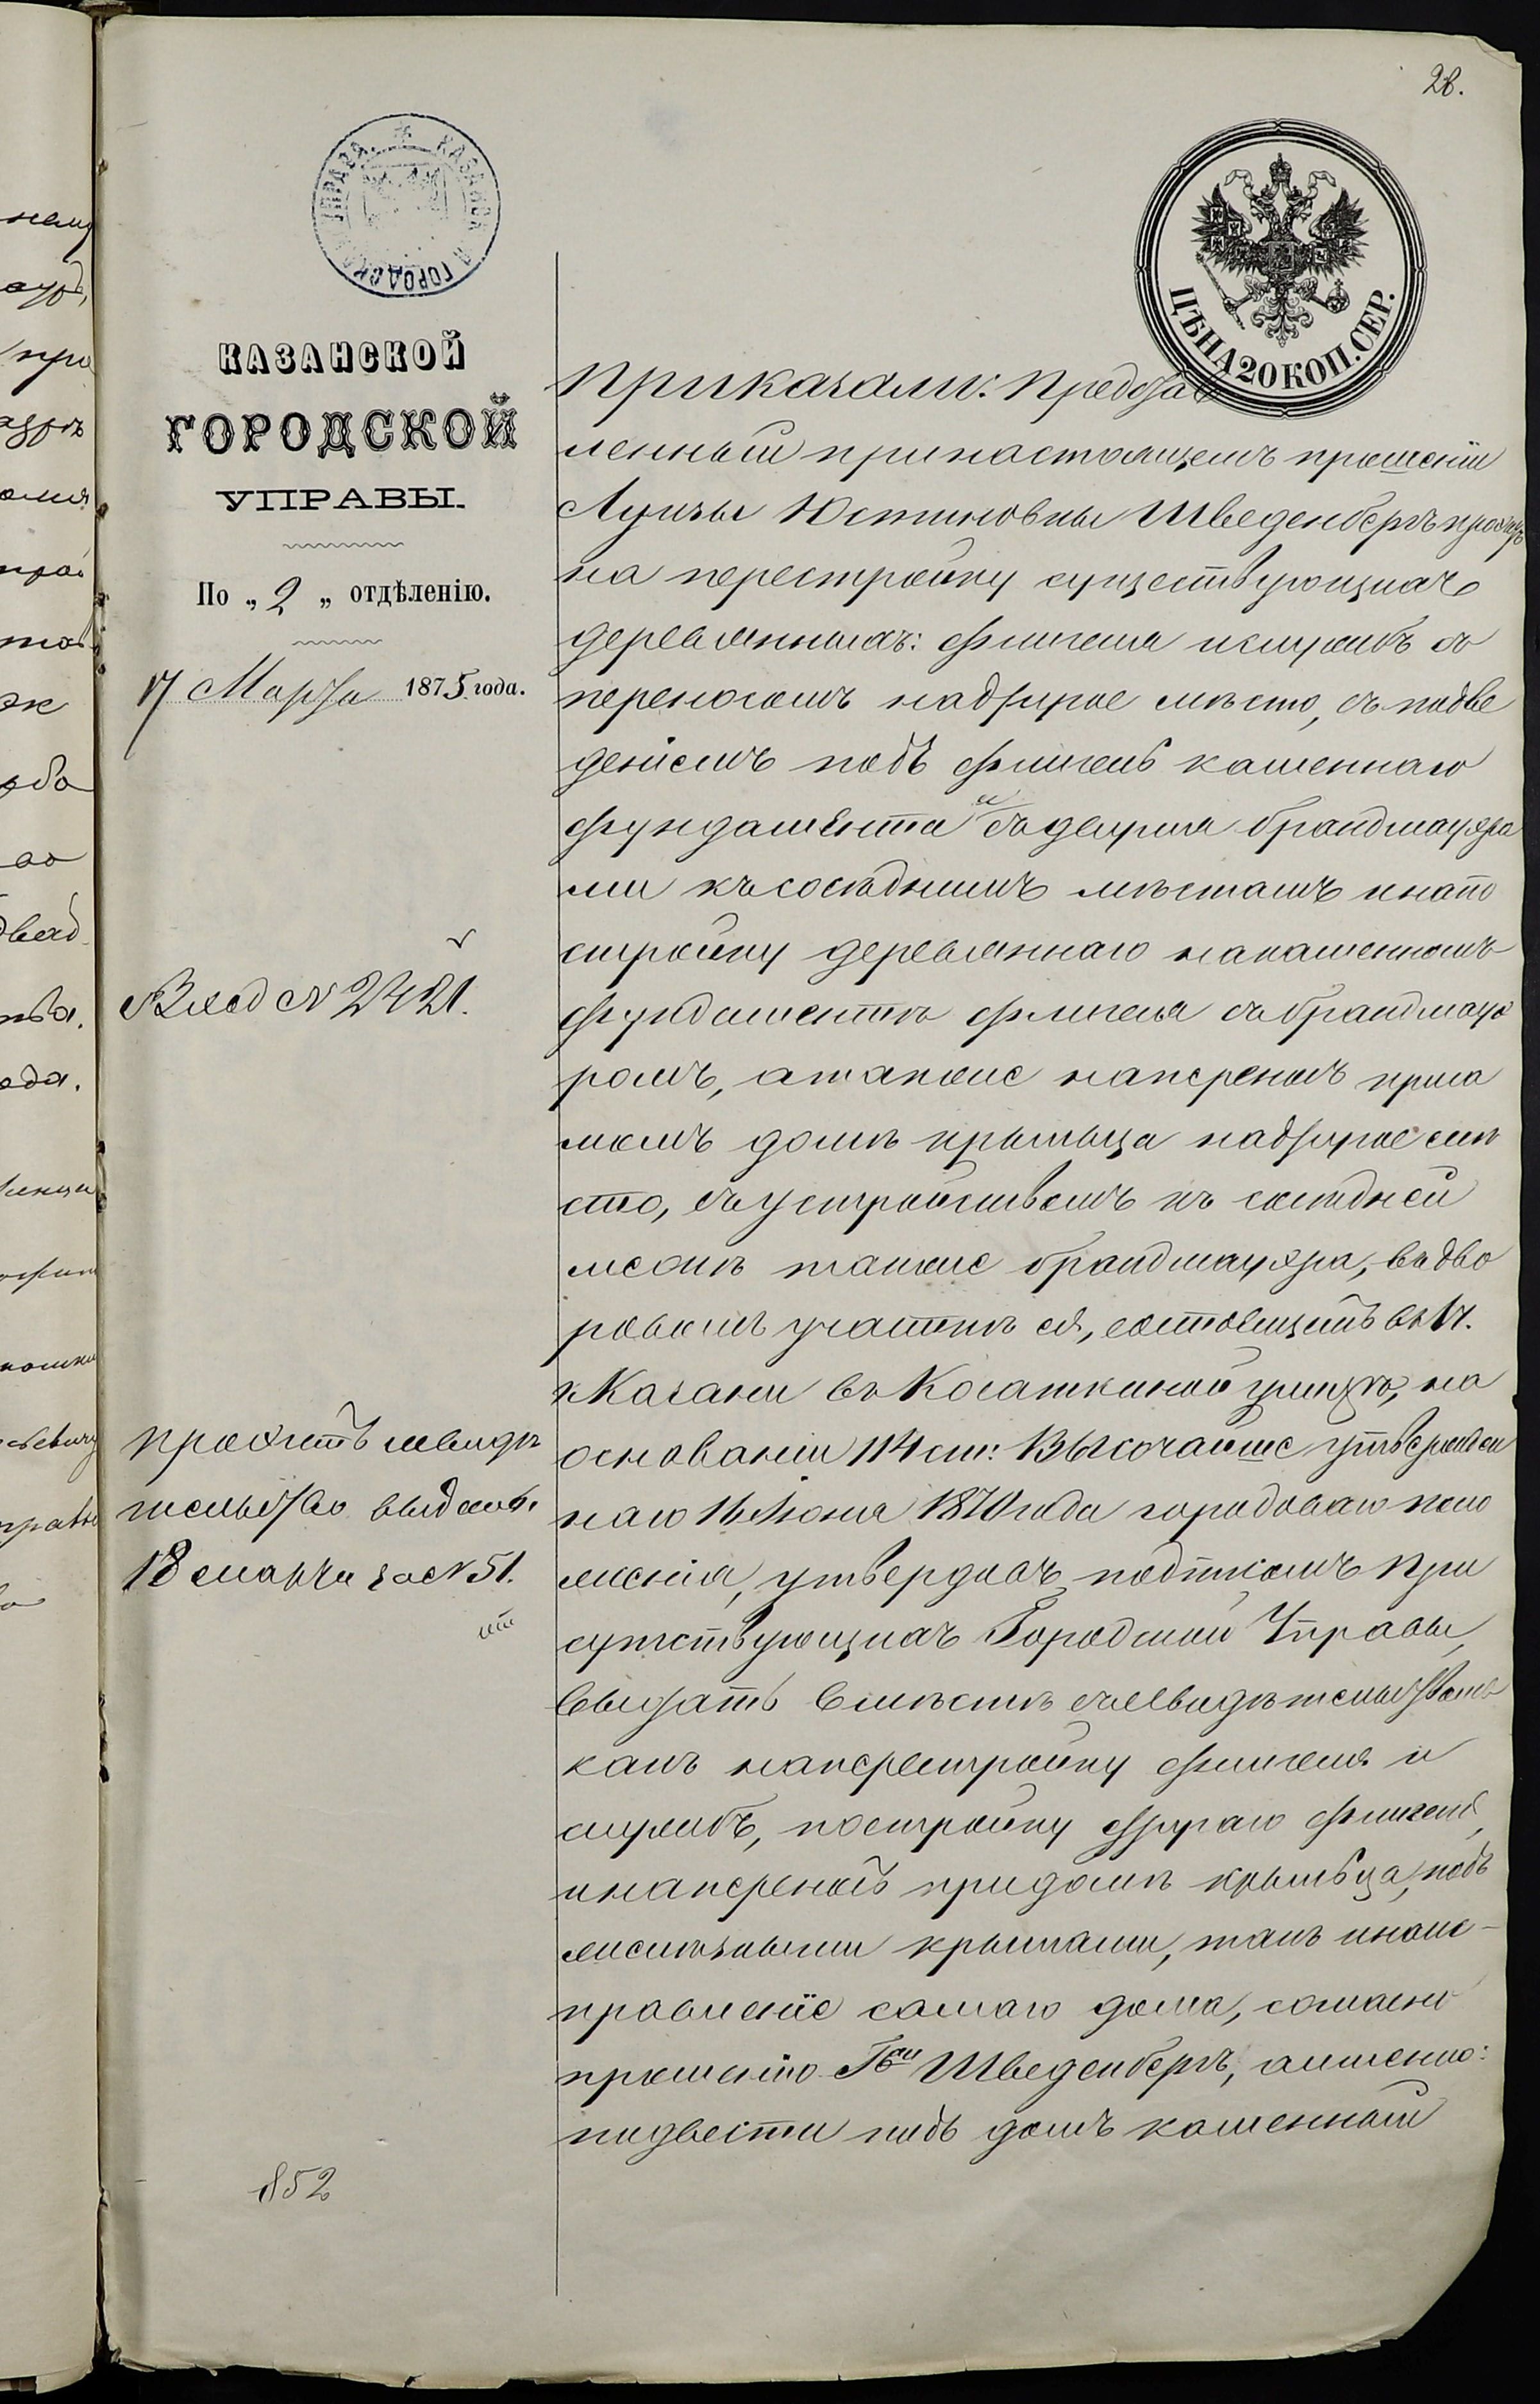 28.
КАЗАНСКАЯ ГОРОДСКАЯ УПРАВА
ЦѢНА 20 КОП. СЕР.
КАЗАНСКОЙ
ГОРОДСКОЙ
УПРАВЫ.
По „ 2 „ отдѣленію.
17 Марта 1875 года.
Вход № 2421.
Проэктъ и свидѣ
тельство выданъ
18 марта за № 51.
852
Приказали: Представ
ленный при настоящемъ прошеніи
Луизы Юстиновны Шведенбергъ проэктъ
на перестройку существующихъ
деревянныхъ: флигеля и службъ съ
переносомъ на другое мѣсто, съ подве
деніемъ подъ флигель каменнаго
фундамента и съ двумя брандмауэра
ми къ сосѣднимъ мѣстамъ и на по
стройку деревяннаго на каменномъ
фундаментѣ флигеля съ брандмауэ
ромъ, а также на переносъ при са
момъ домѣ крыльца на другое мѣ
сто, съ устройствомъ къ сосѣдней
межѣ также брандмауэра, въ дво
ровомъ участкѣ ея, состоящемъ въ 1 ч.
г. Казани въ Касаткиной улицѣ, на
основаніи 114 ст: Высочайше утвержден
наго 16 Июня 1870 года городоваго поло
женія, утвердивъ подписомъ при
сутствующихъ Городской Управы,
выдать вмѣстѣ съ свидѣтельствомъ
какъ на перестройку флигеля и
службъ, постройку другаго флигеля,
и на переносъ при домѣ крыльца, подъ
желѣзными крышами, такъ и на ис-
правленіе самаго дома, согласно
прошенію Г-жи Шведенбергъ, а именно:
подвести подъ домъ каменный